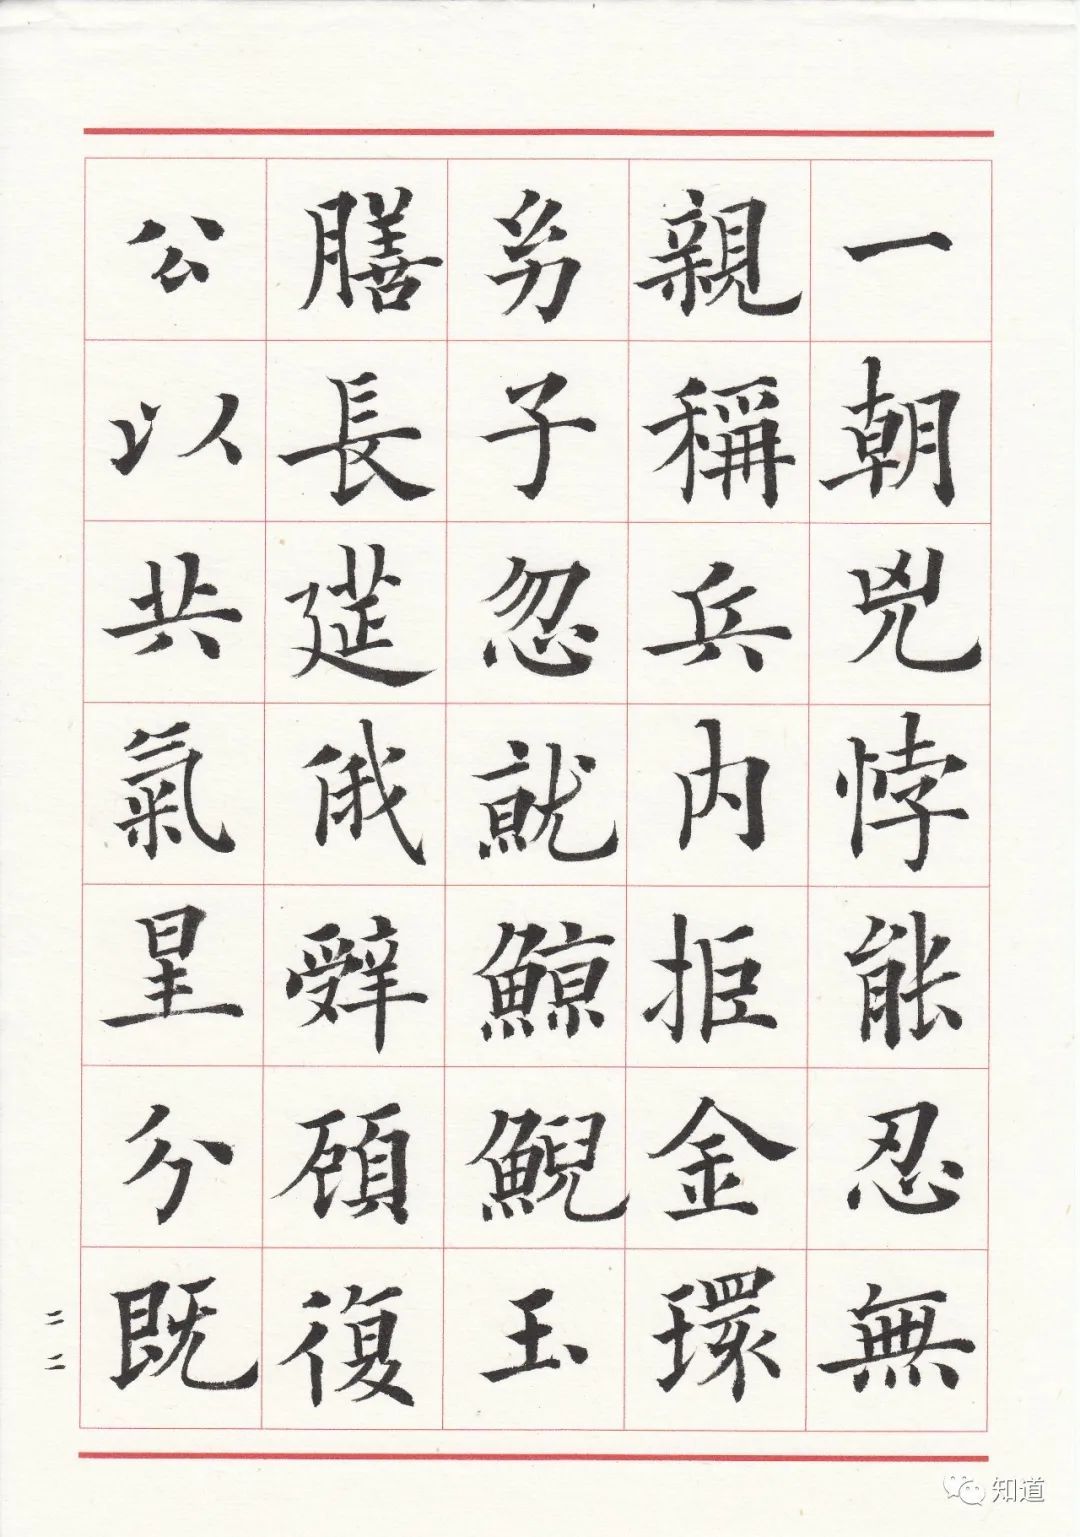 一朝兇悖能忍無
親稱兵内拒金環
㓜子忽就鯨鯢玉
膳長莚俄辤顧復
公以共氣星分既
二一
知道